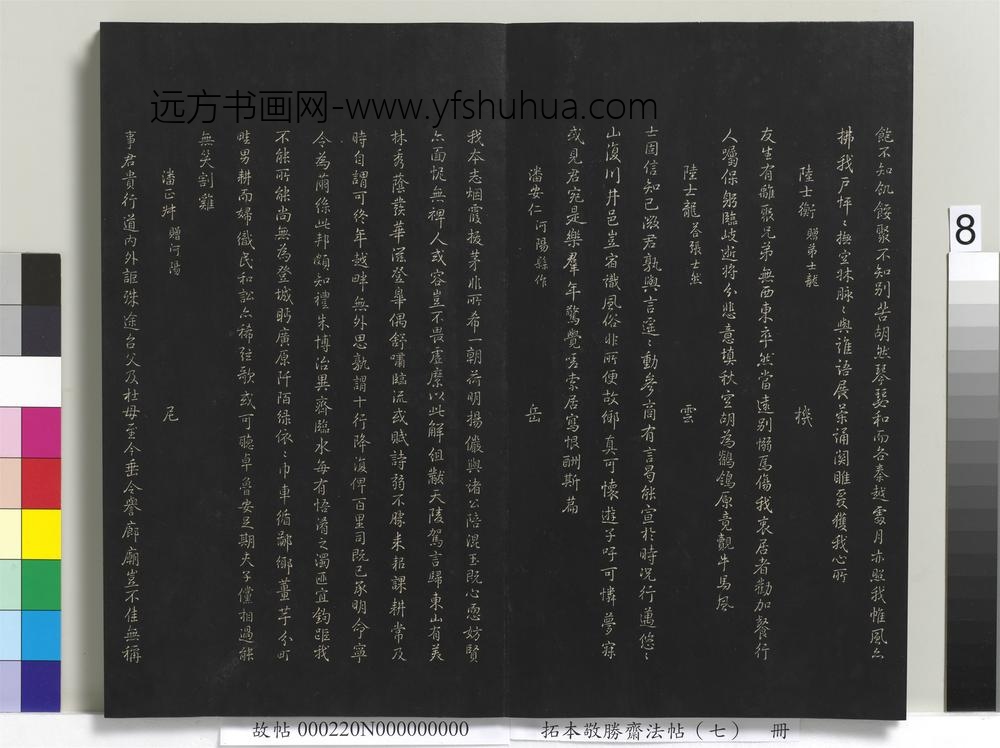 远方书画网-www.yfshuhua.com
飽不知飢餒聚不知別苦胡然琴瑟和而各秦越處月亦照我帷風亦
拂我戶怦〻撫空牀脉〻與誰語展葉誦関雎爰獲我心所
陸士衡 贈弟士龍 機
友生有離聚兄弟無西東卒然當遠別惄焉傷我衷居者勸加餐行
人囑保躬臨歧逝將分悲意填秋空胡為鶺鴒原竟覿牛馬風
陸士龍 答張士然 雲
士固信知己微君孰與言遥〻動參商有言曷能宣於時况行邁悠〻
山復川井邑豈省識風俗非所便故鄉真可懷遊子吁可憐夢寐
或見君宛是樂羣年驚覺仍索居寫恨酬斯篇
潘安仁 河陽縣作 岳
我本志烟霞拔茅非所希一朝荷明揚儼與諸公陪混玉既心恧妨賢
亦面忸無裨人或容豈不畏虛縻以此解組黻天陵駕言歸東山有美
林秀蔭發華滋登皋偶舒嘯臨流或賦詩弱不勝耒耜課耕常及
時自謂可終年越畔無外思孰謂十行降復俾百里司既已承明命寧
今為繭絲此邦頗知禮朱博治異齊臨水每有悟淆之濁匪宜鈞距我
不能所能尚無為登城眄廣原阡陌綠依〻巾車循鄙鄉薑芋分町
畦男耕而婦織民和訟亦稀弦歌或可聽卓魯安足期夫子儻相過能
無笑割雞
潘正叔 贈河陽 尼
事君貴行道內外詎殊途召父及杜母至今垂令譽廊廟豈不佳無稱
8
故帖 000220N000000000
拓本敬勝齋法帖（七） 冊